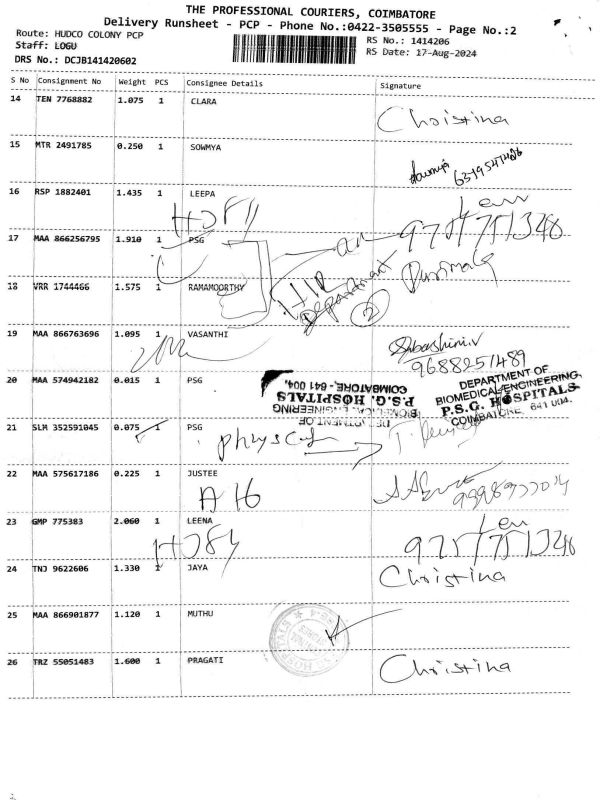 THE PROFESSIONAL COURIERS, COIMBATORE
Delivery Runsheet - PCP - Phone No.:0422-3505555 - Page No.:2
Route: HUDCO COLONY PCP
RS No.: 1414206
Staff: LOGU
RS Date: 17-Aug-2024
DRS No.: DCJB141420602
S No Consignment No Weight PCS Consignee Details Signature
14 TEN 7768882 1.075 1 CLARA Christina
15 MTR 2491785 0.250 1 SOWMYA Sowmya
16 RSP 1882401 1.435 1 LEEPA
17 MAA 866256795 1.910 1 PSG
18 VRR 1744466 1.575 1 RAMAMOORTHY
Department
2
19 MAA 866763696 1.095 1 VASANTHI Subashini.v
9688251489
20 MAA 574942182 0.015 1 PSG
DEPARTMENT OF
BIOMEDICAL ENGINEERING
P.S.G. HOSPITALS
COIMBATORE - 641 004.
DEPARTMENT OF
BIOMEDICAL ENGINEERING
P.S.G. HOSPITALS
COIMBATORE 641 004.
21 SLM 352591045 0.075 1 PSG
22 MAA 575617186 0.225 1 JUSTEE
A16
23 GMP 775383 2.060 1 LEENA
24 TNJ 9622606 1.330 1 JAYA Christina
25 MAA 866901877 1.120 1 MUTHU
26 TRZ 55051483 1.600 1 PRAGATI Christina